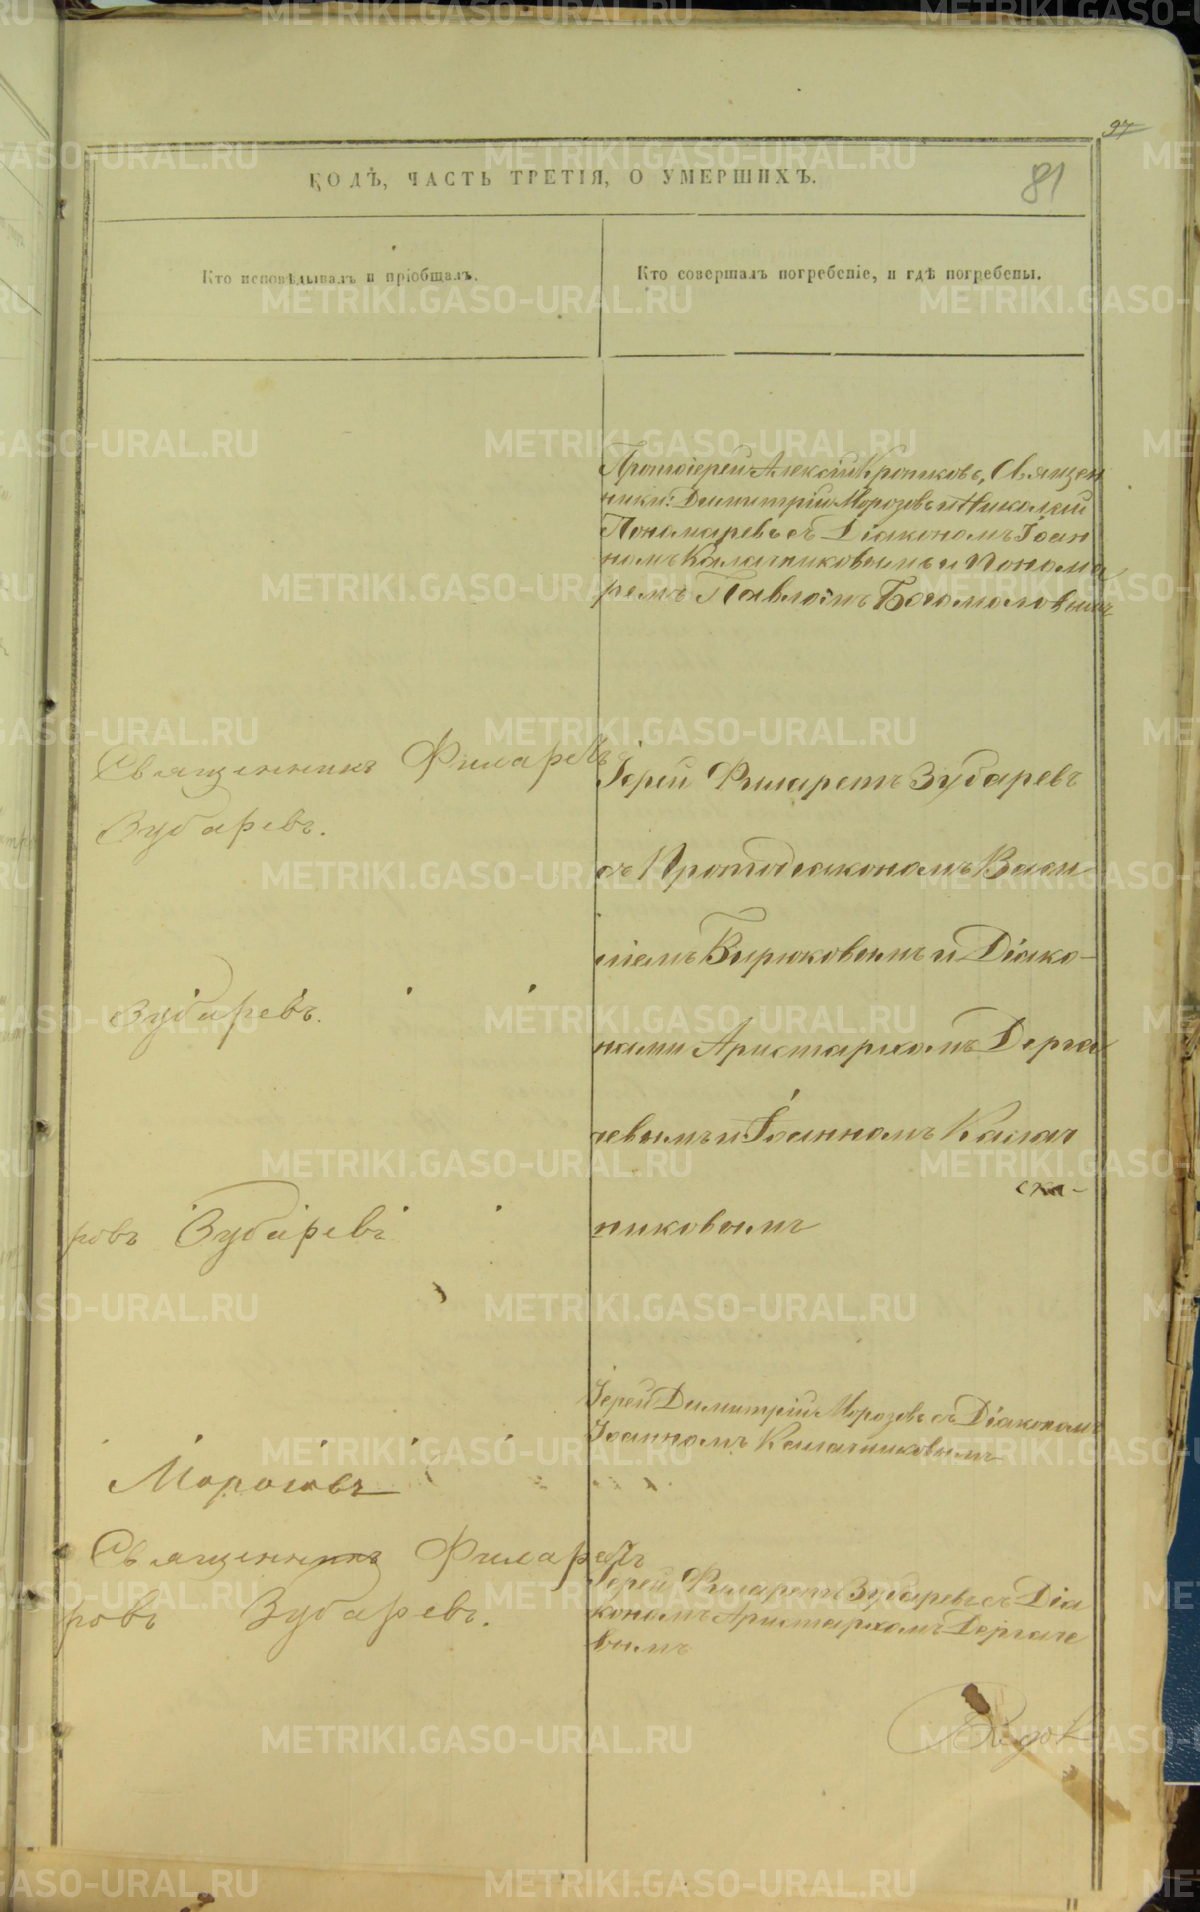 97
КОДѢ, ЧАСТЬ ТРЕТІЯ, О УМЕРШИХЪ.
81
Кто исповѣдывалъ и пріобщалъ.
Кто совершалъ погребеніе, и гдѣ погребены.
Протоіерей Алексій Кротковъ, Священ
ники: Димитрій Морозовъ и Николай
Пономаревъ съ Діакономъ Іоан
номъ Калачниковымъ и Понома
ремъ Павломъ Богомоловымъ
Священникъ Филаретъ
Зубаревъ.
Іерей Филаретъ Зубаревъ
съ Протодіакономъ Васи
ліемъ Бирюковымъ и Діако-
Зубаревъ.
нами Аристархомъ Дерга
чевымъ и Іоанномъ Калач
ровъ Зубаревъ
никовымъ
Іерей Димитрій Морозовъ съ Діакономъ
Іоанномъ Калачниковымъ
Морозовъ
Священникъ Филаретъ
ровъ Зубаревъ.
Іерей Филаретъ Зубаревъ съ Діа
кономъ Аристархомъ Дергаче
вымъ
METRIKI.GASO-URAL.RU